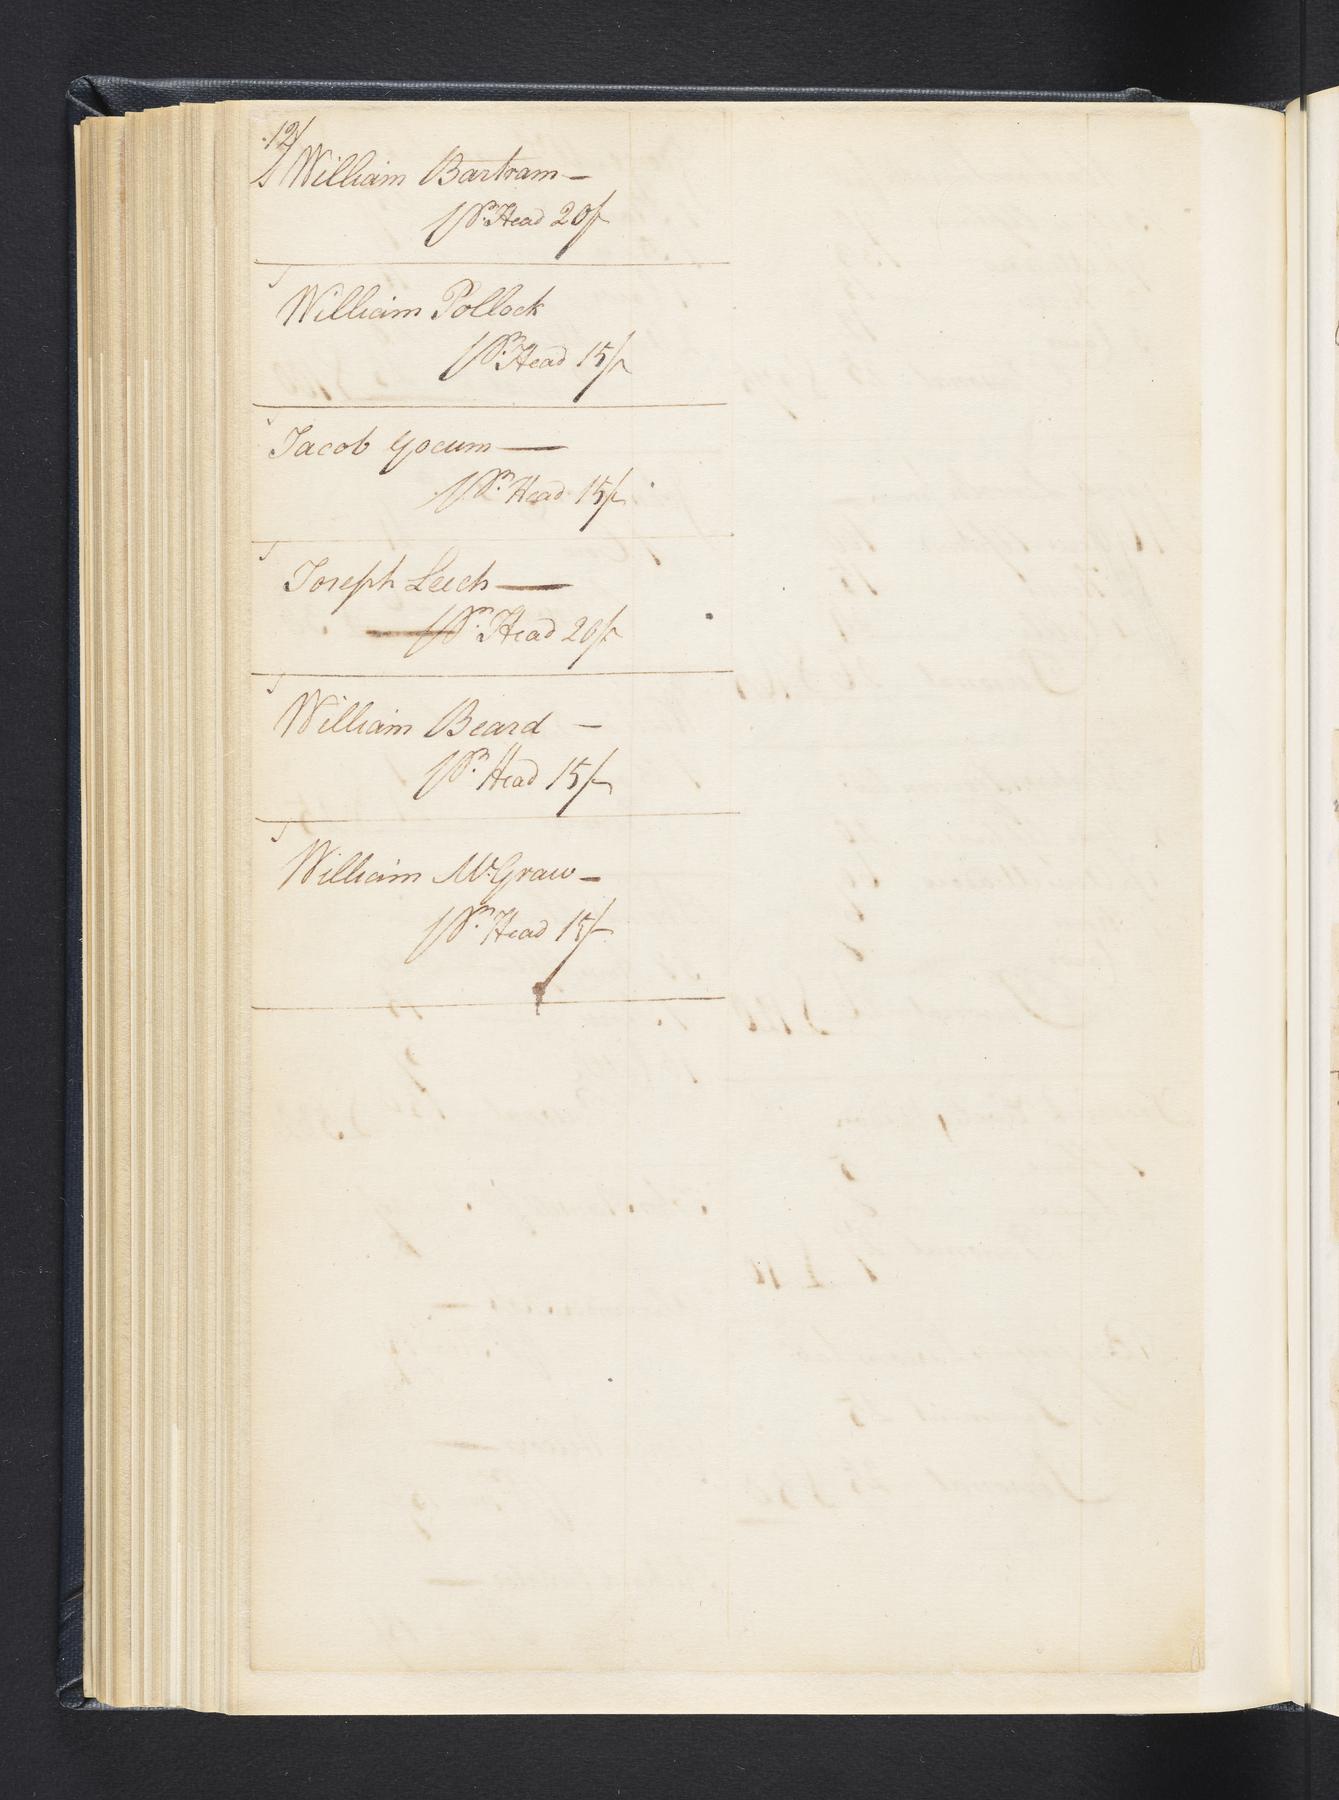 12/
William Bartram —
Pr. Head 20/-
William Pollock
Pr. Head 15/-
Jacob Yocum —
Pr. Head 15/-
Joseph Leech —
Pr. Head 20/-
William Beard —
Pr. Head 15/-
William McGraw —
Pr. Head 15/-